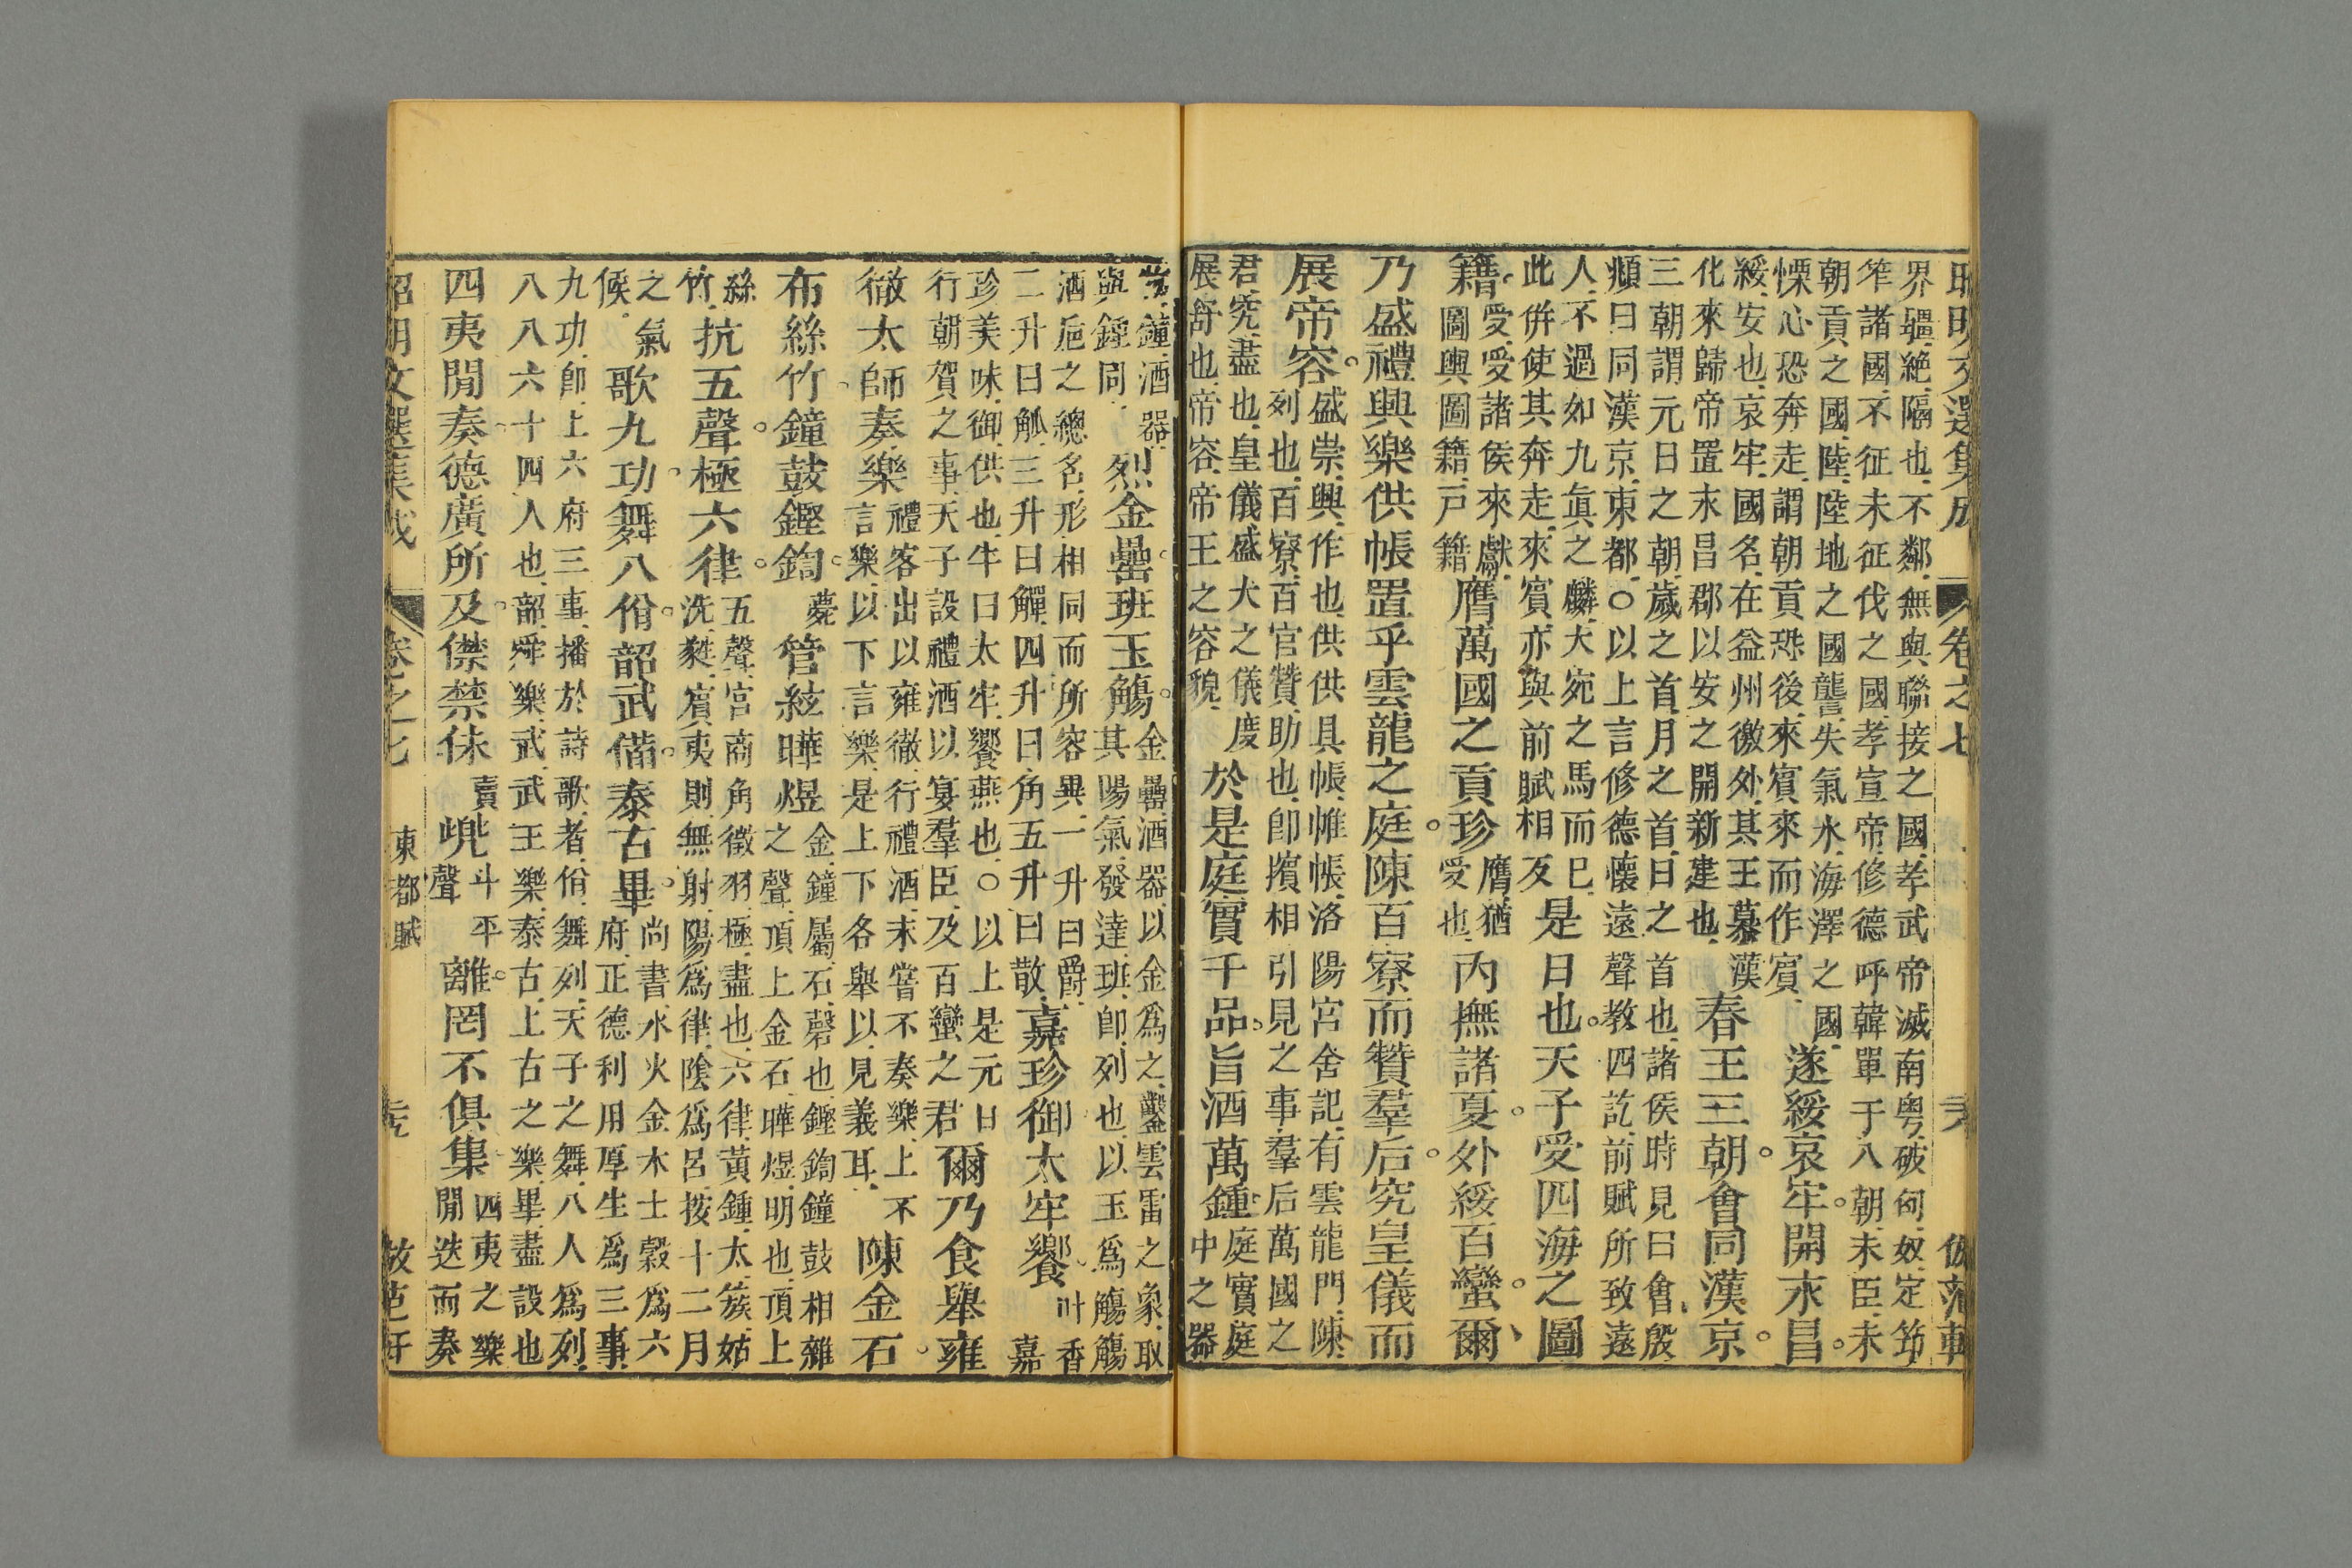 昭明文選集成 卷之七 倣范軒
界疆絶隔也不鄰無與聯接之國孝武帝滅南粤破匈奴定筇
筰諸國不征未征伐之國孝宣帝修德呼韓單于入朝未臣未
朝貢之國陸陸地之國讋失氣水海澤之國
慄心恐奔走謂朝貢恐後來賓來而作賓
遂綏哀牢開永昌
綏安也哀牢國名在益州徼外其王慕漢
化來歸帝置永昌郡以安之開新建也
春王三朝會同漢京
三朝謂元日之朝歲之首月之首日之首也諸侯時見曰會殷
頫曰同漢京東都○以上言修德懷遠聲教四訖前賦所致遠
人不過如九眞之麟大宛之馬而已
此併使其奔走來賓亦與前賦相反
是日也天子受四海之圖
籍
受受諸侯來獻
圖輿圖籍戸籍
膺萬國之貢珍
膺猶
受也
内撫諸夏外綏百蠻爾
乃盛禮興樂供帳置乎雲龍之庭陳百寮而贊羣后究皇儀而
展帝容
盛崇興作也供供具帳帷帳洛陽宮舍記有雲龍門陳
列也百寮百官贊助也卽擯相引見之事羣后萬國之
君究盡也皇儀盛大之儀度
展舒也帝容帝王之容貌
於是庭實千品旨酒萬鍾
庭實庭
中之器
鐘酒器
與鍾同
烈金罍班玉觴
金罍酒器以金爲之鑿雲雷之象取
其陽氣發達班卽列也以玉爲觴觴
酒巵之總名形相同而所容異一升曰爵
二升曰觚三升曰觶四升曰角五升曰散
嘉珍御太牢饗
叶香
嘉
珍美味御供也牛曰太牢饗燕也○以上是元日
行朝賀之事天子設禮酒以宴羣臣及百蠻之君
爾乃食舉雍
徹太師奏樂
禮客出以雍徹行禮酒未嘗不奏樂上不
言樂以下言樂是上下各舉以見義耳
陳金石
布絲竹鐘鼓鏗鍧
薨
管絃曄煜
金鐘屬石磬也鏗鍧鐘鼓相雜
之聲頂上金石曄煜明也頂上
絲
竹
抗五聲極六律
五聲宮商角徵羽極盡也六律黄鍾太簇姑
洗蕤賓夷則無射陽爲律陰爲呂按十二月
之氣
候
歌九功舞八佾韶武備泰古畢
尚書水火金木土穀爲六
府正德利用厚生爲三事
九功卽上六府三事播於詩歌者佾舞列天子之舞八人爲列
八八六十四人也韶舜樂武武王樂泰古上古之樂畢盡設也
四夷閒奏德廣所及僸禁佅
賣
兠
斗平
聲
離罔不俱集
四夷之樂
閒迭而奏
昭明文選集成 卷之七 東都賦 倣范軒